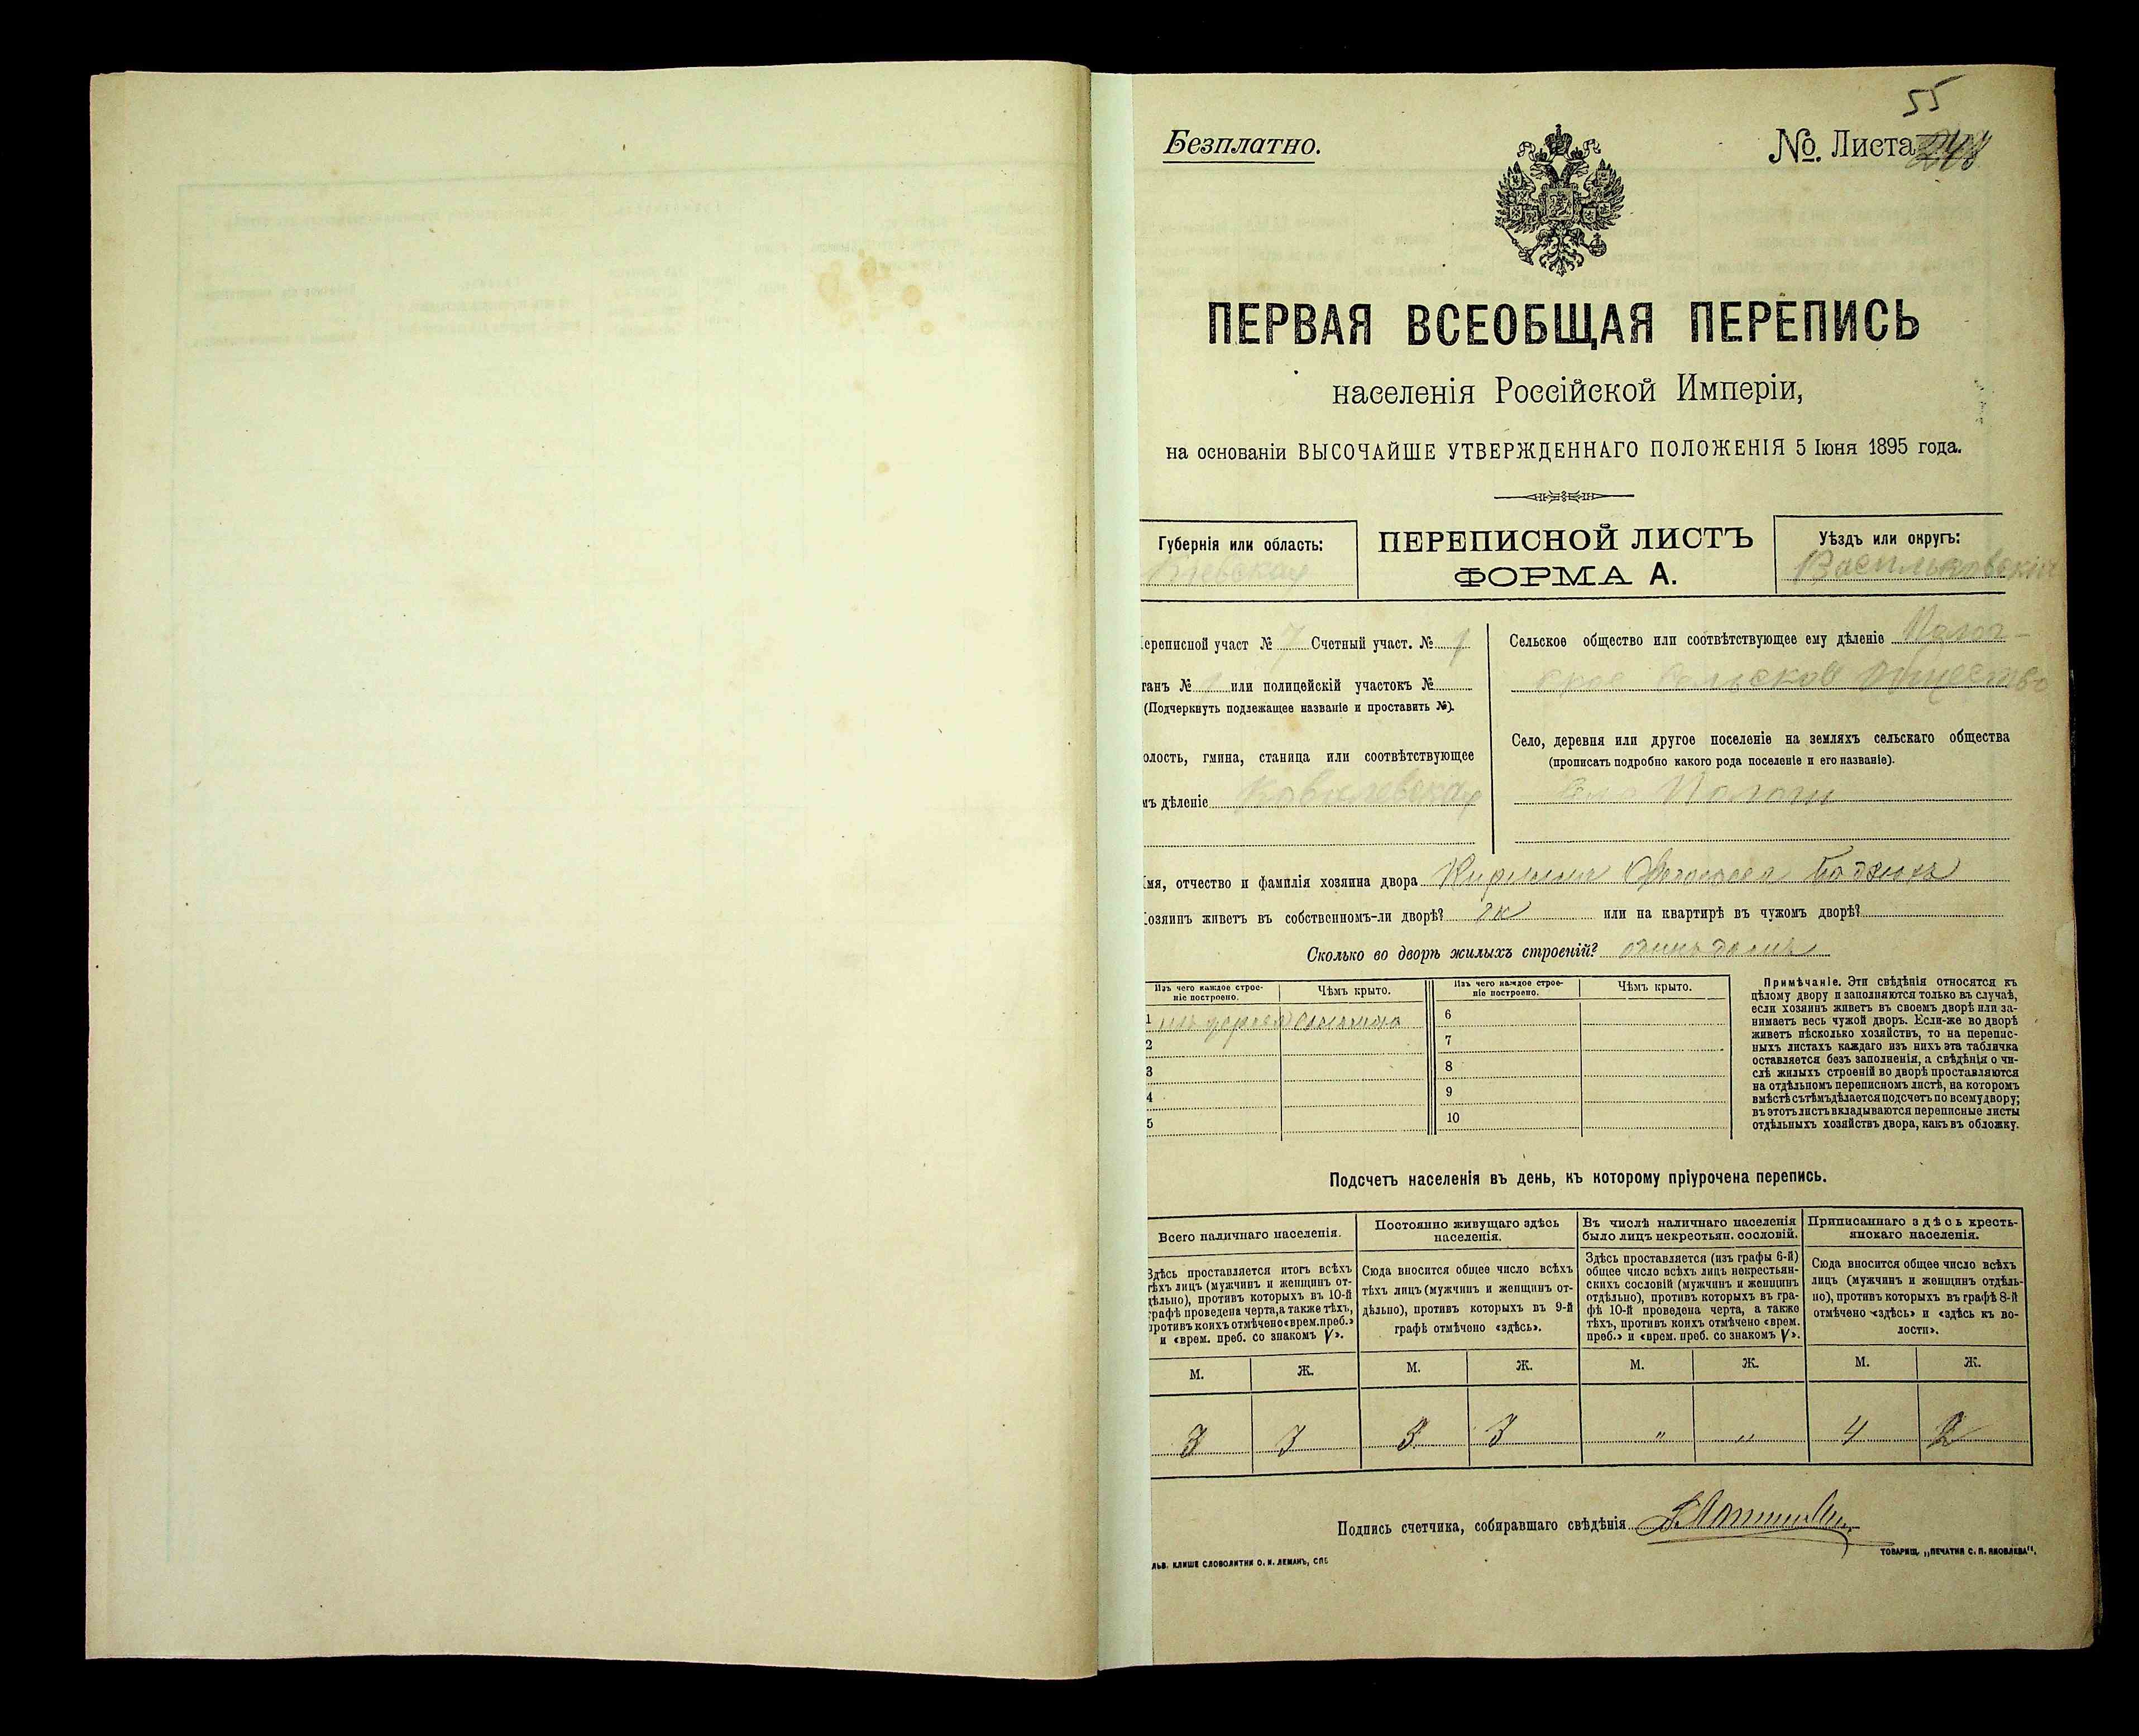 55
Безплатно.
№. Листа
ПЕРВАЯ ВСЕОБЩАЯ ПЕРЕПИСЬ
населенія Россійской Имперіи,
на основаніи ВЫСОЧАЙШЕ УТВЕРЖДЕННАГО ПОЛОЖЕНІЯ 5 Іюня 1895 года.
Губернія или область:
Кіевская
ПЕРЕПИСНОЙ ЛИСТЪ
ФОРМА А.
Уѣздъ или округъ:
Васильковскій
ереписной участ № 7 Счетный участ. № 1
танъ № 1 или полицейскій участокъ №
(Подчеркнуть подлежащее названіе и проставить №).
олость, гмина, станица или соотвѣтствующее
мъ дѣленіе Ковалевская
Сельское общество или соотвѣтствующее ему дѣленіе Полог-
ское Сельское Общество
Село, деревня или другое поселеніе на земляхъ сельскаго общества
(прописать подробно какого рода поселеніе и его названіе).
Село Пологи
мя, отчество и фамилія хозяина двора
озяинъ живетъ въ собственномъ-ли дворѣ? или на квартирѣ въ чужомъ дворѣ?
Сколько во дворѣ жилыхъ строеній? одинъ домъ
Изъ чего каждое строе-
ніе построено.
Чѣмъ крыто.
1 изъ дерева соломою
2
3
4
5
Изъ чего каждое строе-
ніе построено.
Чѣмъ крыто.
6
7
8
9
10
Примѣчаніе. Эти свѣдѣнія относятся къ
цѣлому двору и заполняются только въ случаѣ,
если хозяинъ живетъ въ своемъ дворѣ или за-
нимаетъ весь чужой дворъ. Если-же во дворѣ
живетъ нѣсколько хозяйствъ, то на перепис-
ныхъ листахъ каждаго изъ нихъ эта табличка
оставляется безъ заполненія, а свѣдѣнія о чи-
слѣ жилыхъ строеній во дворѣ проставляются
на отдѣльномъ переписномъ листѣ, на которомъ
вмѣстѣ съ тѣмъ дѣлается подсчетъ по всему двору;
въ этотъ листъ вкладываются переписные листы
отдѣльныхъ хозяйствъ двора, какъ въ обложку.
Подсчетъ населенія въ день, къ которому пріурочена перепись.
Всего наличнаго населенія.
Здѣсь проставляется итогъ всѣхъ
тѣхъ лицъ (мужчинъ и женщинъ от-
дѣльно), противъ которыхъ въ 10-й
графѣ проведена черта, а также тѣхъ,
противъ коихъ отмѣчено «врем. преб.»
и «врем. преб. со знакомъ V».
Постоянно живущаго здѣсь
населенія.
Сюда вносится общее число всѣхъ
тѣхъ лицъ (мужчинъ и женщинъ от-
дѣльно), противъ которыхъ въ 9-й
графѣ отмѣчено «здѣсь».
Въ числѣ наличнаго населенія
было лицъ некрестьян. сословій.
Здѣсь проставляется (изъ графы 6-й)
общее число всѣхъ лицъ некрестьян-
скихъ сословій (мужчинъ и женщинъ
отдѣльно), противъ которыхъ въ гра-
фѣ 10-й проведена черта, а также
тѣхъ, противъ коихъ отмѣчено «врем.
преб.» и «врем. преб. со знакомъ V».
Приписаннаго здѣсь кресть-
янскаго населенія.
Сюда вносится общее число всѣхъ
лицъ (мужчинъ и женщинъ отдѣль-
но), противъ которыхъ въ графѣ 8-й
отмѣчено «здѣсь» и «здѣсь къ во-
лости».
М. Ж. М. Ж. М. Ж. М. Ж.
3 3 3 3 " " 4 2
Подпись счетчика, собиравшаго свѣдѣнія
ЛЬВ. КЛИШЕ СЛОВОЛИТНИ О. И. ЛЕМАНЪ, СПБ
ТОВАРИЩ. „ПЕЧАТНЯ С. П. ЯКОВЛЕВА".